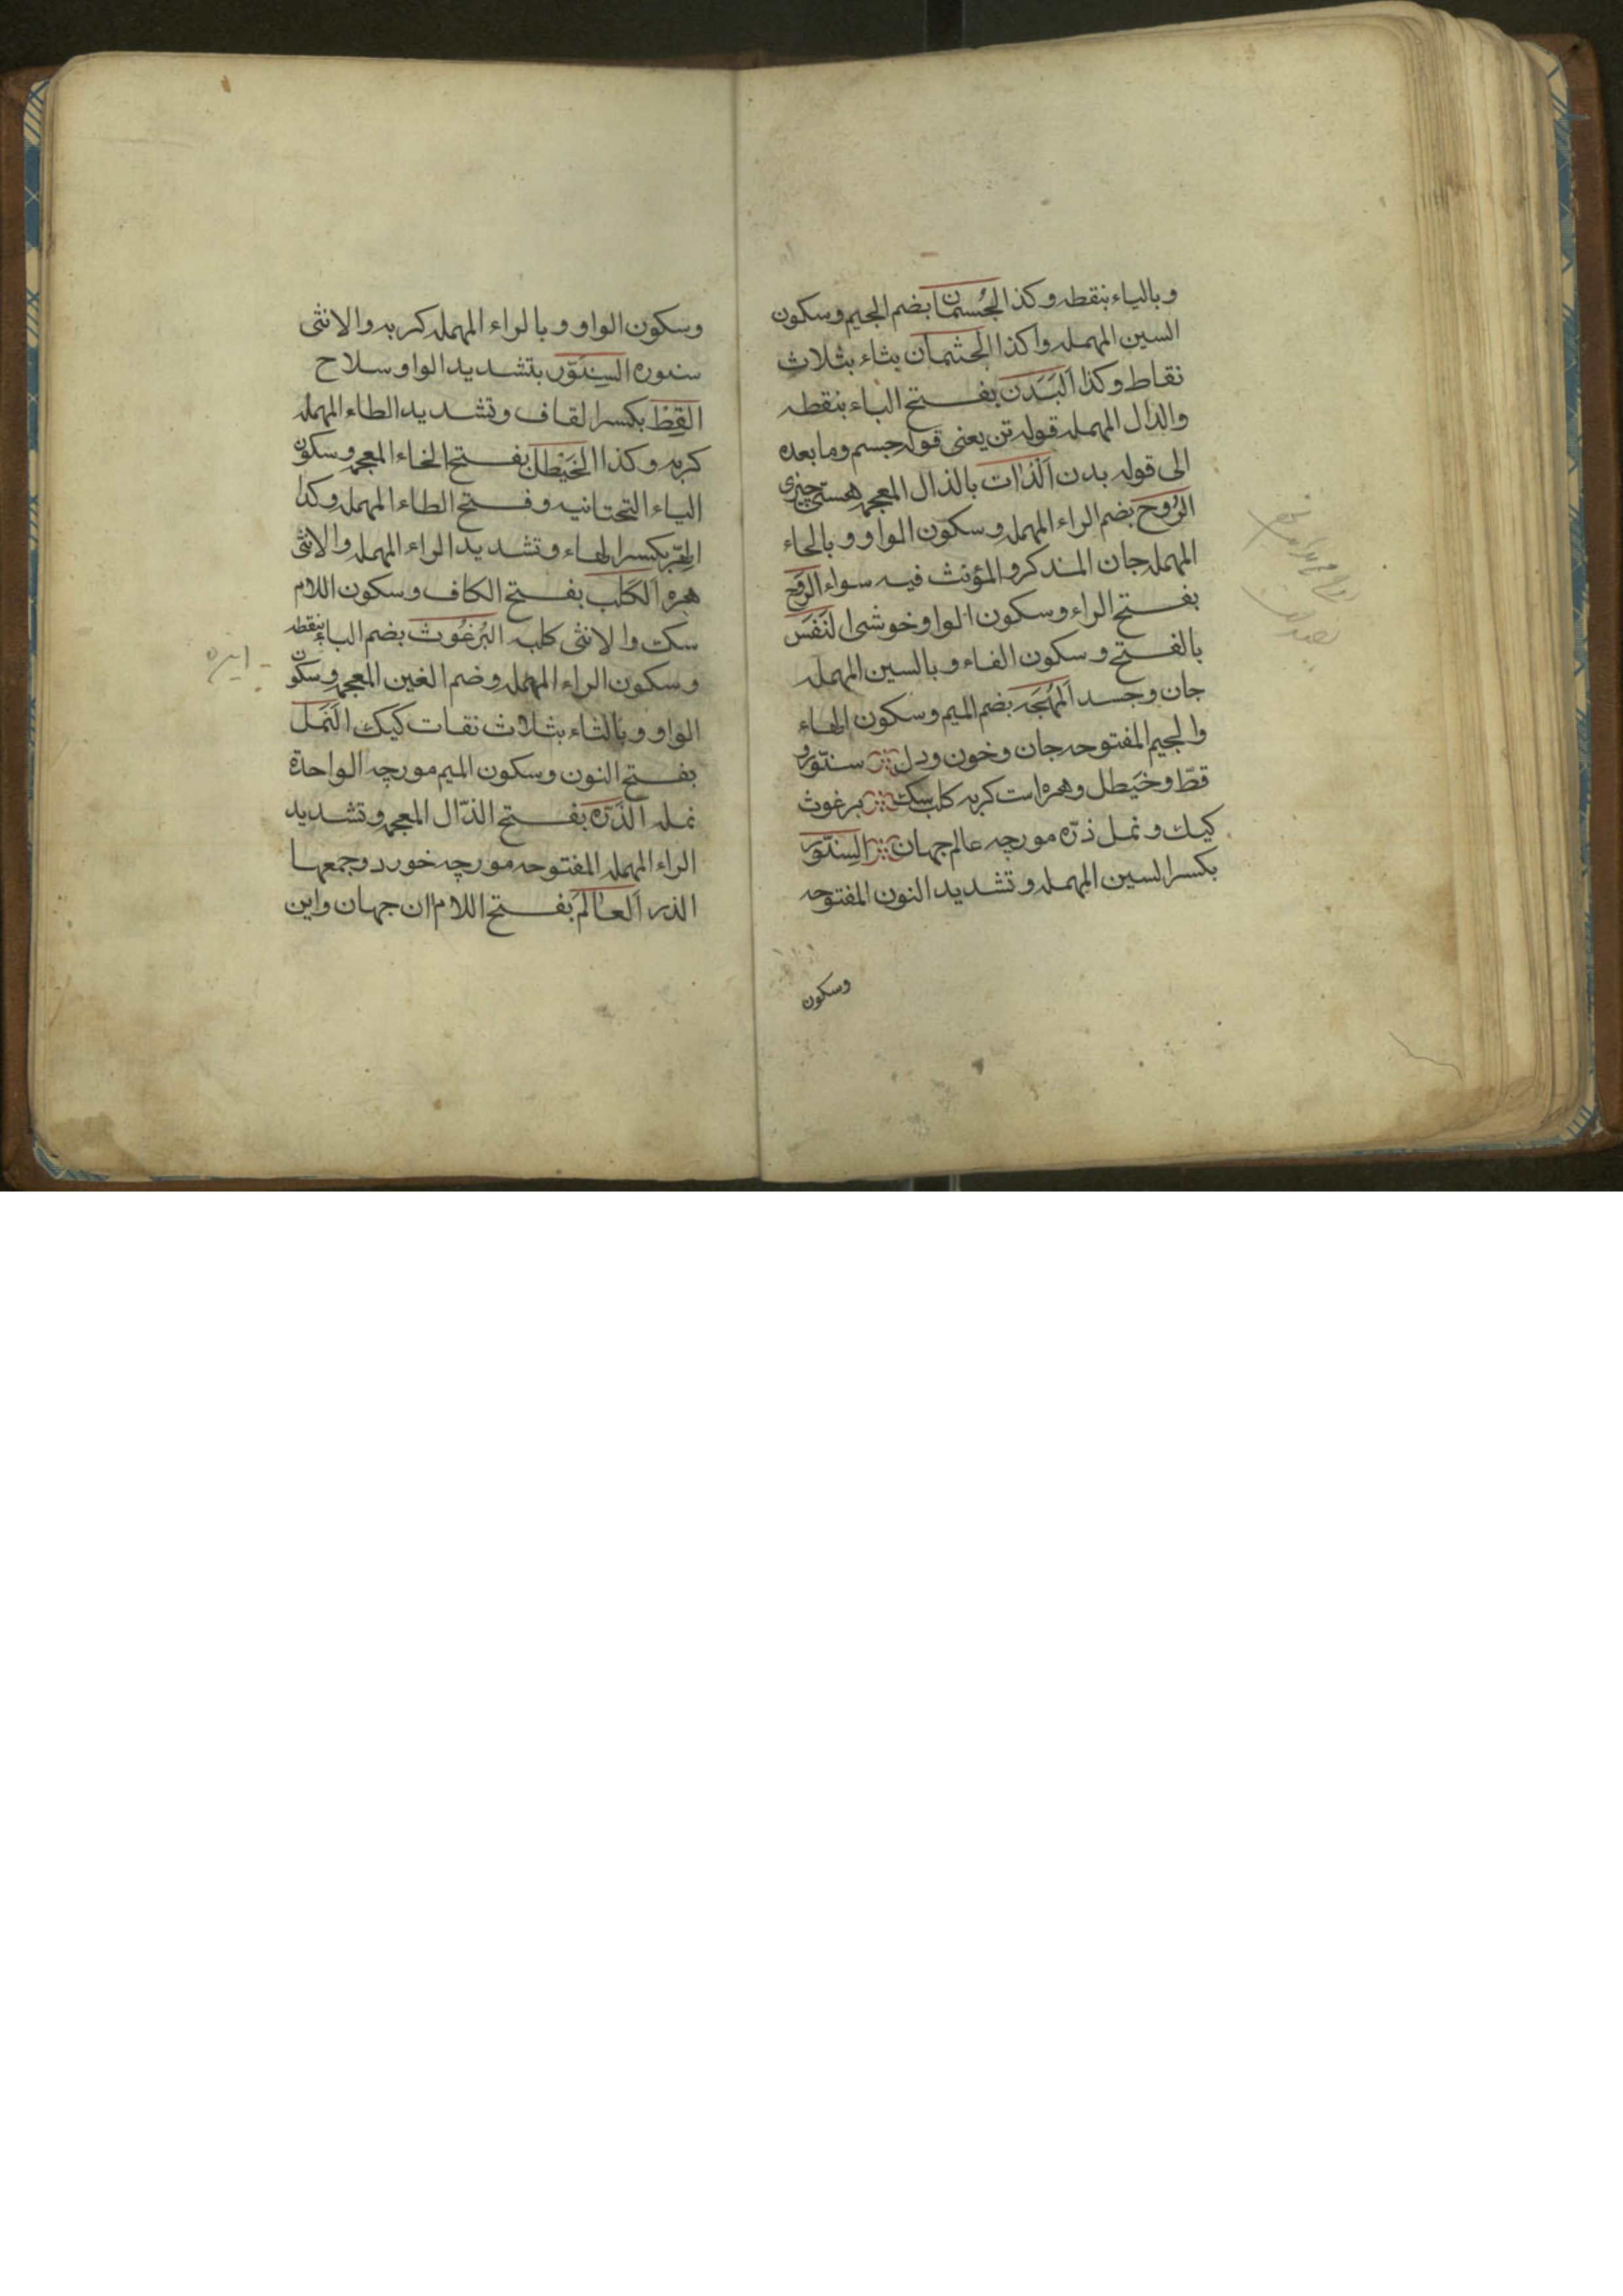 وبالباء بنقطه وكذا الجُسمان بضم الجيم وسكون
السين المهمله واكذا الجثمان بثاء بثلاث
نقاط وكذا اَلبَدَن بفـتح الباء بنقطه
والدال المهمله قوله تن يعنى قوله جسم وما بعده
الى قوله بدن اَلذات بالذال المعجمه هستى چيزى
الرُوح بضم الراء المهمله وسكون الواو وبالحاء
المهمله جان المذكر والمؤنث فيه سواء الرَوح
بفـتح الراء وسكون الواو خوشى النَفَس
بالفـتح وسكون الفاء وبالسين المهمله
جان وجسد اَلمُهجَه بضم الميم وسكون الهاء
والجيم المفتوحه جان وخون ودل سنّور و
قطّ وخَيطل وهره است كربه كلب سك برغوث
كيك ونمل ذرّه مورچه عالم جهان السِنّور
بكسر السين المهمله وتشديد النون المفتوحه
وسكون
وسكون الواو وبالراء المهمله كربه والانثى
سنوره السِنَوّر بتشديد الواو سلاح
القِطّ بكسر القاف وتشديد الطاء المهمله
كربه وكذا الخَيْطل بفـتح الخاء المعجمه وسكون
الياء التحتانيه وفـتح الطاء المهمله وكذا
الهِرّ بكسر الهاء وتشديد الراء المهمله والانثى
هره اَلكَلب بفـتح الكاف وسكون اللام
سك والانثى كلبه البُرغُوث بضم الباء بنقطه
وسكون الراء المهمله وضم الغين المعجمه وسكون
الواو وبالثاء بثلاث نقات كيك النَمل
بفـتح النون وسكون الميم مورچه الواحدة
نمله الذَرّه بفـتح الذّال المعجمه وتشديد
الراء المهمله المفتوحه مورچه خورد وجمعها
الذر اَلعالَم بفـتح اللام ان جهان واين